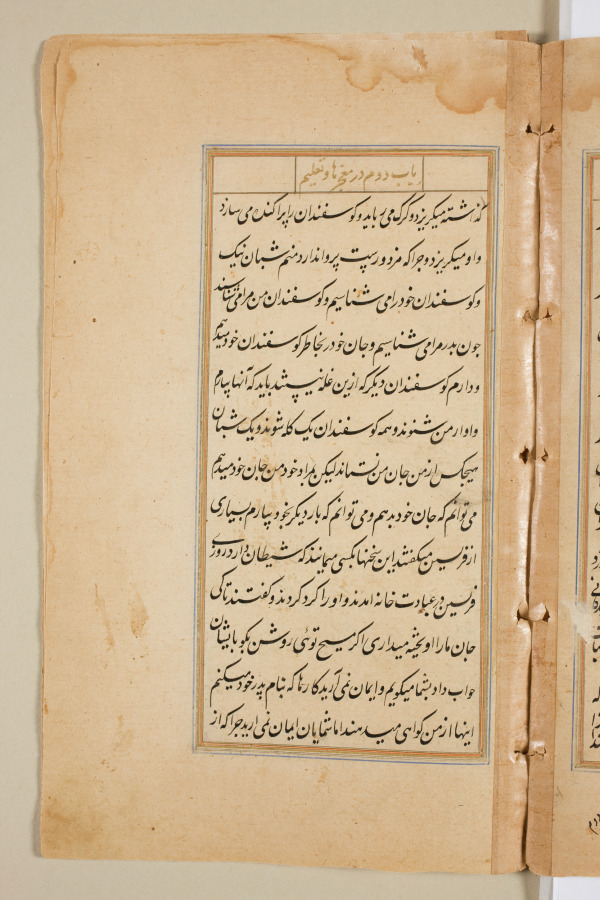 باب دوم در معجزها و تعلیم
گذاشته میکریزد و کرک می رباید و کوسفندان را پراکنده می سازد
و او میکریزد و جراکه مزدورست پروا ندارد منم شبان نیک
و کوسفندان خود را می شناسیم و کوسفندان من مرا می شناسند
جون بدر مرا می شناسیم و جان خود بخاطر کوسفندان خود میدهم
و دارم کوسفندان دیکر که ازین غله نیستند باید که آنها بیارم
و اواز من شنوند و همه کوسفندان یک کله شوند و یک شبان
هیجکس از من جان من نستاند لیکن بمراد خود من جان خود میدهم
می توانم که جان خود بدهم و می توانم که بار دیکر بخود بیارم بسیاری
از فریسین میکفتند این سخنها بکسی میمانند که شیطان دارد روزی
فریسین در عبادت خانه امدند و او را کرد کردند و کفتند تا کی
جان ما را اویخته میداری اکر مسیح توئی روشن بکو با یشان
جواب داد بشما میکویم و ایمان نمی آرید کارها که بنام پدر خود میکنم
اینها از من کواهی میدهند اما شمایان ایمان نمی ارید جراکه از